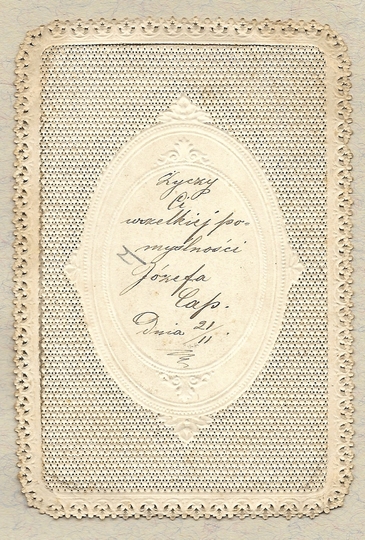 Życzy
Ci
wszelkiej po-
myślności
Józefa
Cap.
Dnia 21/11.